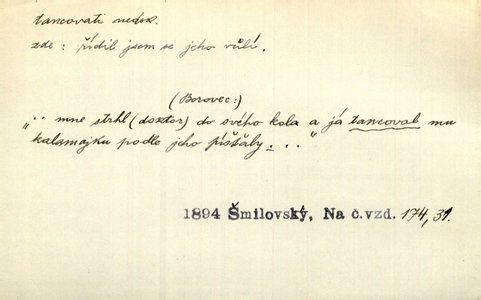 tancovati nedok.
zde: řídil jsem se jeho vůlí.
(Borovec:)
„.. mne strhl (doktor) do svého kola a já tancoval mu
kalamajku podle jeho píšťaly. . .“
1894 Šmilovský, Na č.vzd. 174,31.